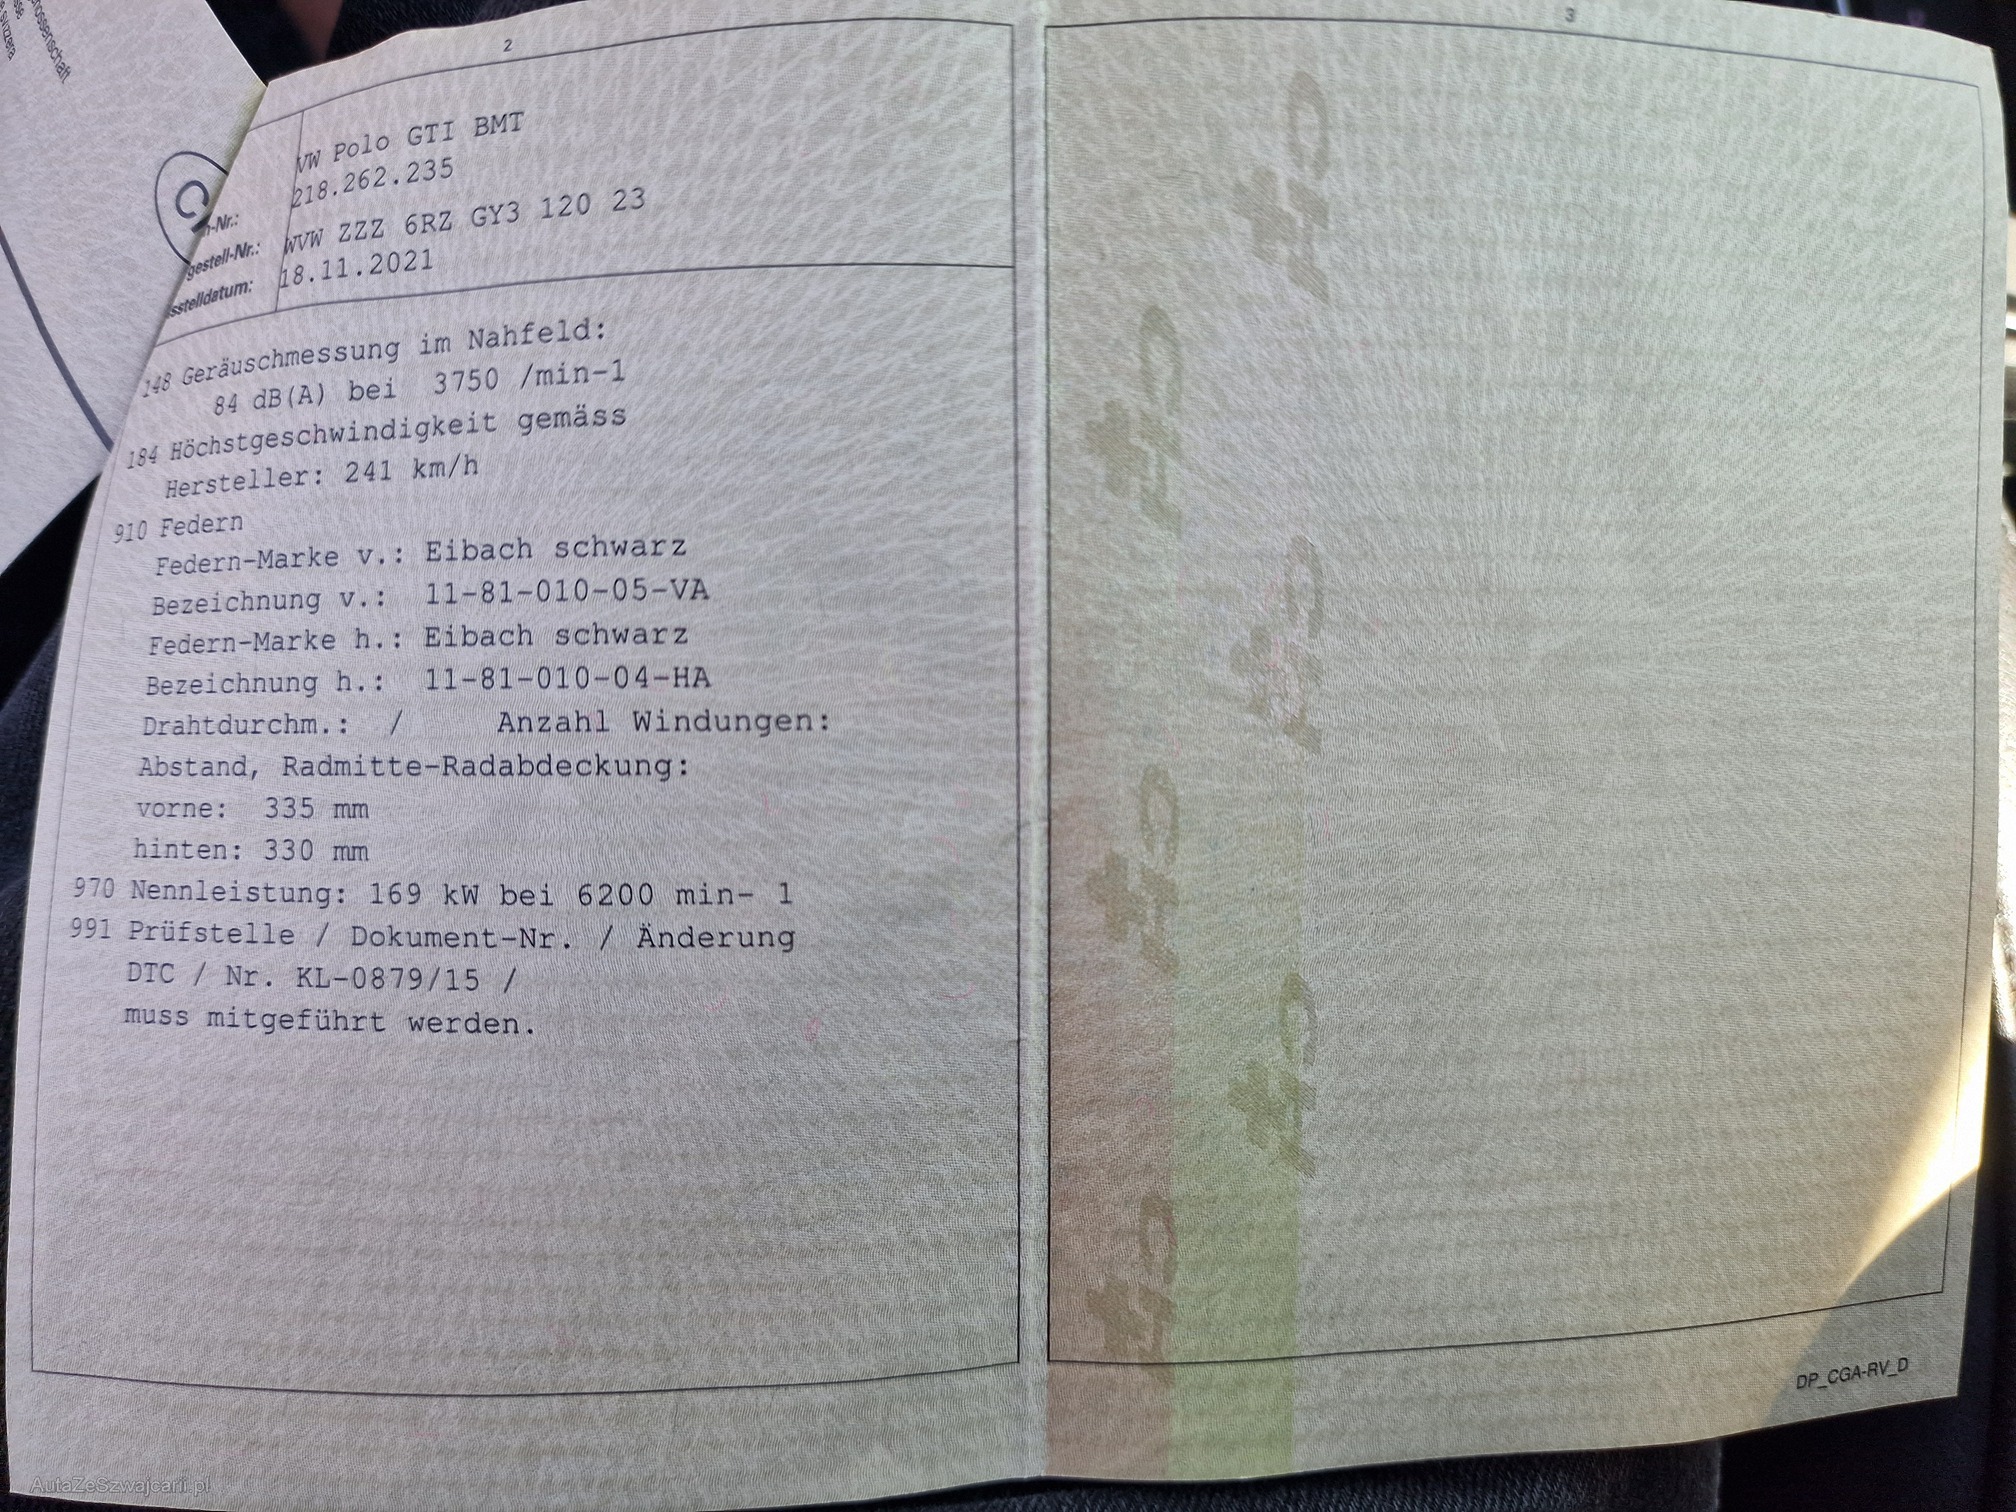 ossenschaft
sse
e svizzera
2
VW Polo GTI BMT
218.262.235
-Nr.:
gestell-Nr.: WVW ZZZ 6RZ GY3 120 23
sstelldatum: 18.11.2021
148 Geräuschmessung im Nahfeld:
84 dB(A) bei 3750 /min-1
184 Höchstgeschwindigkeit gemäss
Hersteller: 241 km/h
910 Federn
Federn-Marke v.: Eibach schwarz
Bezeichnung v.: 11-81-010-05-VA
Federn-Marke h.: Eibach schwarz
Bezeichnung h.: 11-81-010-04-HA
Drahtdurchm.: / Anzahl Windungen:
Abstand, Radmitte-Radabdeckung:
vorne: 335 mm
hinten: 330 mm
970 Nennleistung: 169 kW bei 6200 min- 1
991 Prüfstelle / Dokument-Nr. / Änderung
DTC / Nr. KL-0879/15 /
muss mitgeführt werden.
3
CH
CH
CH
CH
CH
CH
DP_CGA-RV_D
AutaZeSzwajcarii.pl